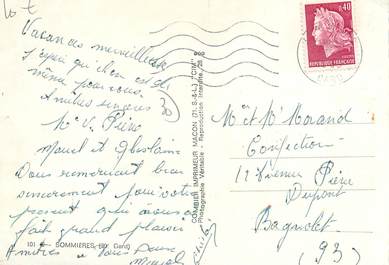 10 €
Vacances merveilleuses
J'espère qu'il en est de
même pour vous
Amitiés sincères
Me V. Pène
Marcel et Ghislaine
Vous remercient bien
sincèrement pour votre
présent qui a aussi
fait grand plaisir
Amitiés à Vous Deux
30
101 SOMMIERES (30. Gard)
COMBIER IMPRIMEUR MACON (71. S.-&-L.) "CIM"
Photographie Véritable - Reproduction Interdite
0,40
REPUBLIQUE FRANÇAISE
Mr et Me Morand
Confection
12 Avenue Pierre
Dupont
Bagnolet
(93)